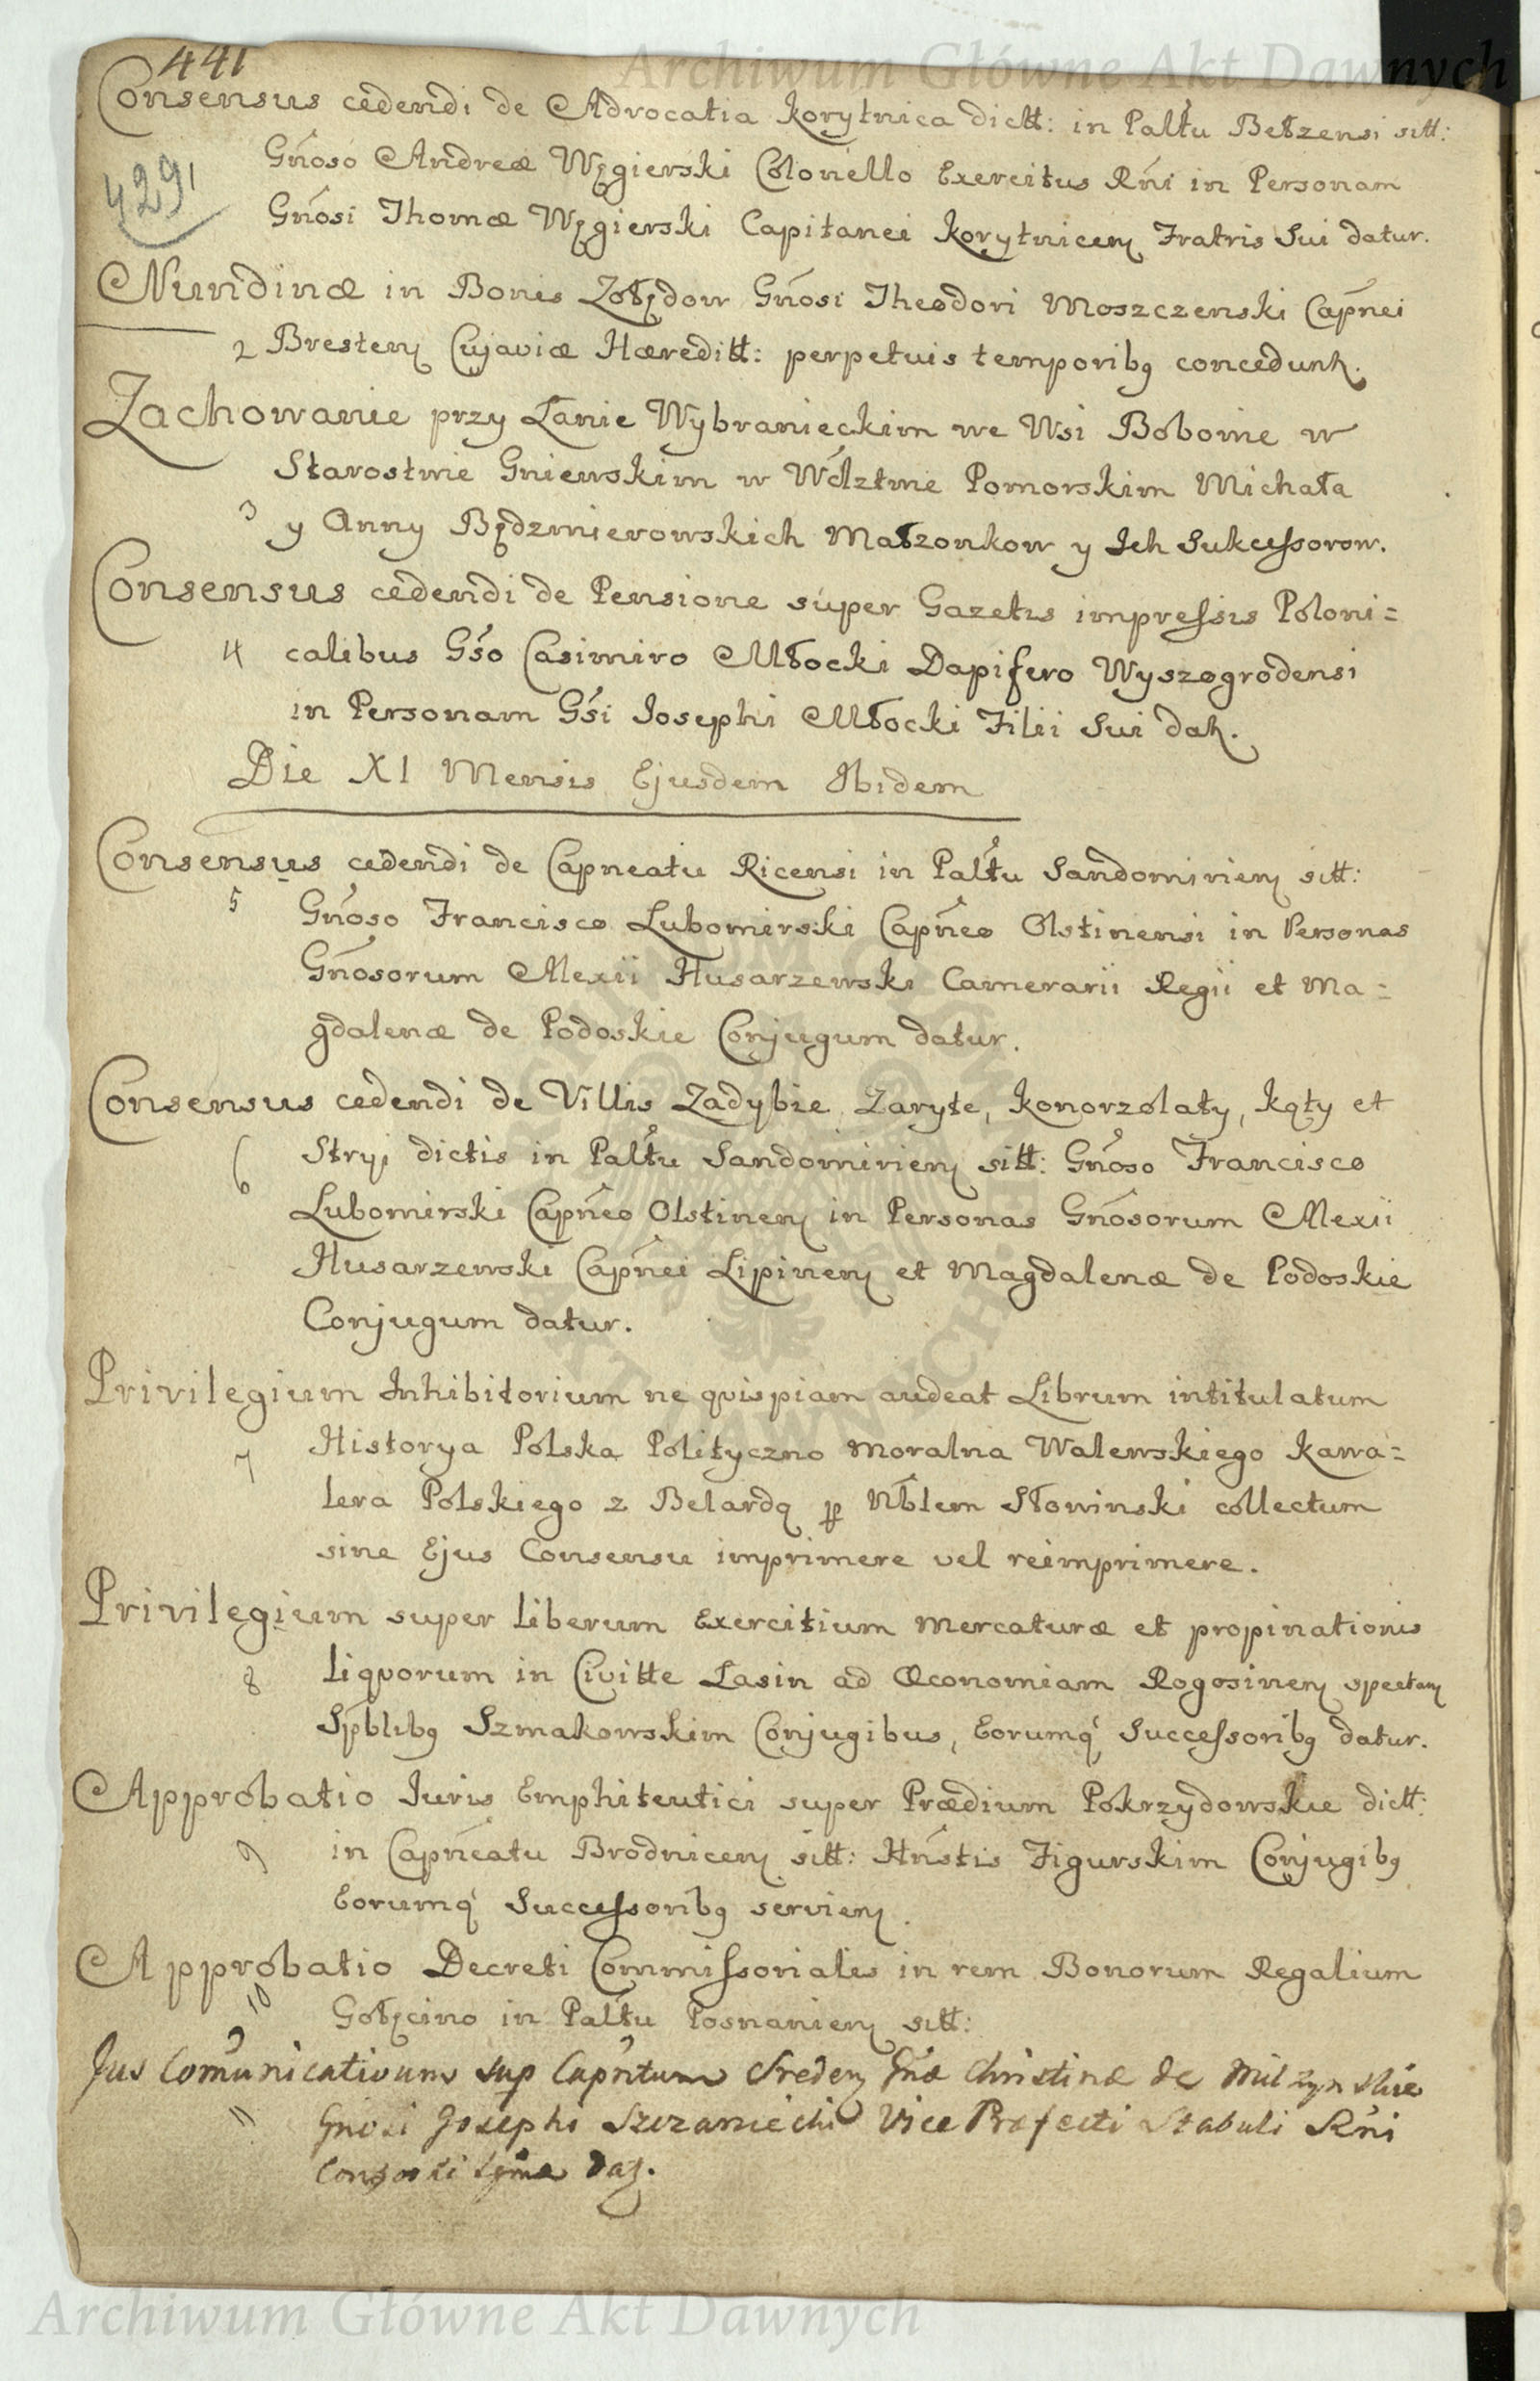 Archiwum Główne Akt Dawnych
441
Consensus cedendi de Advocatia Korytnica dictt: in Paltu Betzensi sitt:
4291
Gnoso Andreæ Węgierski Colonello Exercitus Rni in Personam
Gnosi Thomæ Węgierski Capitanei Korytnicen Fratris Sui datur.
Nundinæ in Bonis Zołędow Gnosi Theodori Moszczenski Capnei
2 Bresten Cujaviæ Hæreditt: perpetuis temporibq concedunt.
Zachowanie przy Łanie Wybranieckim we Wsi Bobowie w
Starostwie Gniewskim w Wdztwie Pomorskim Michała
3 y Anny Będzmierowskich Małzonkow y Ich Sukcessorow.
Consensus cedendi de Pensione super Gazetis impressis Poloni=
4 calibus Gso Casimiro Młocki Dapifero Wyszogrodensi
in Personam Gsi Josephi Młocki Filii Sui dat.
Die XI Mensis Ejusdem Ibidem
Consensus cedendi de Capneatu Ricensi in Paltu Sandomirien sitt:
5 Gnoso Francisco Lubomirski Capneo Olstinensi in Personas
Gnosorum Alexii Husarzewski Camerarii Regii et Ma=
gdalenæ de Podoskie Conjugum datur.
Consensus cedendi de Villis Zadybie, Zaryte, Konorzolaty, Kąty et
6 Stryj dictis in Paltu Sandomirien sitt: Gnoso Francisco
Lubomirski Capneo Olstinen in Personas Gnosorum Alexii
Husarzewski Capnei Lipinen et Magdalenæ de Podoskie
Conjugum datur.
Privilegium Inhibitorium ne quispiam audeat Librum intitulatum
7 Historya Polska Polityczno Moralna Walewskiego Kawa=
lera Polskiego z Belardą p Nblem Słowinski collectum
sine Ejus Consensu imprimere vel reimprimere.
Privilegium super liberum Exercitium Mercaturæ et propinationis
8 liquorum in Civitte Lasin ad Œconomiam Rogosinen spectan
Spblibq Szmakowskim Conjugibus, Eorumq Successoribq datur.
Approbatio Juris Emphiteutici super Prædium Pokrzydowskie dictt:
9 in Capneatu Brodnicen sitt: Hnstis Figurskim Conjugibq
Eorumq Successoribq servien.
Approbatio Decreti Commissorialis in rem Bonorum Regalium
10 Gołęcino in Paltu Posnanien sitt:
Jus Comunicativum sup Capntum Sreden Gnæ Christinæ de
11 Gnosi Josephi Szczaniecki Vice Præfecti Stabuli Rni
Consorti datt.
Archiwum Główne Akt Dawnych